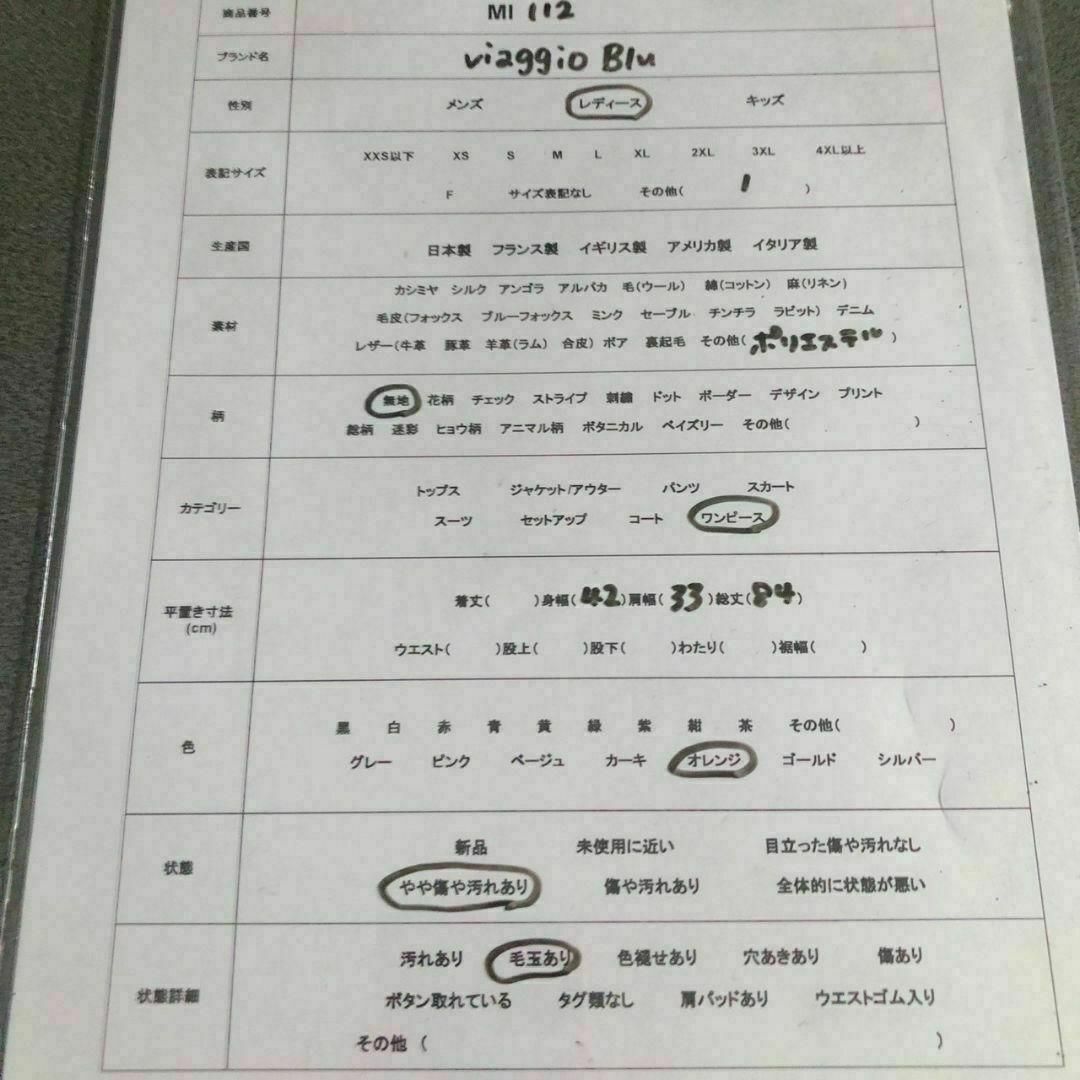 商品番号 MI 112
ブランド名 viaggio Blu
性別 メンズ レディース キッズ
表記サイズ XXS以下 XS S M L XL 2XL 3XL 4XL以上
F サイズ表記なし その他( 1 )
生産国 日本製 フランス製 イギリス製 アメリカ製 イタリア製
カシミヤ シルク アンゴラ アルパカ 毛(ウール) 綿(コットン) 麻(リネン)
素材 毛皮(フォックス ブルーフォックス ミンク セーブル チンチラ ラビット) デニム
レザー(牛革 豚革 羊革(ラム) 合皮) ボア 裏起毛 その他( ポリエステル )
柄 無地 花柄 チェック ストライプ 刺繍 ドット ボーダー デザイン プリント
総柄 迷彩 ヒョウ柄 アニマル柄 ボタニカル ペイズリー その他( )
カテゴリー トップス ジャケット/アウター パンツ スカート
スーツ セットアップ コート ワンピース
平置き寸法 着丈( )身幅( 42 )肩幅( 33 )総丈( 84 )
(cm) ウエスト( )股上( )股下( )わたり( )裾幅( )
色 黒 白 赤 青 黄 緑 紫 紺 茶 その他( )
グレー ピンク ベージュ カーキ オレンジ ゴールド シルバー
状態 新品 未使用に近い 目立った傷や汚れなし
やや傷や汚れあり 傷や汚れあり 全体的に状態が悪い
状態詳細 汚れあり 毛玉あり 色褪せあり 穴あきあり 傷あり
ボタン取れている タグ類なし 肩パッドあり ウエストゴム入り
その他 ( )